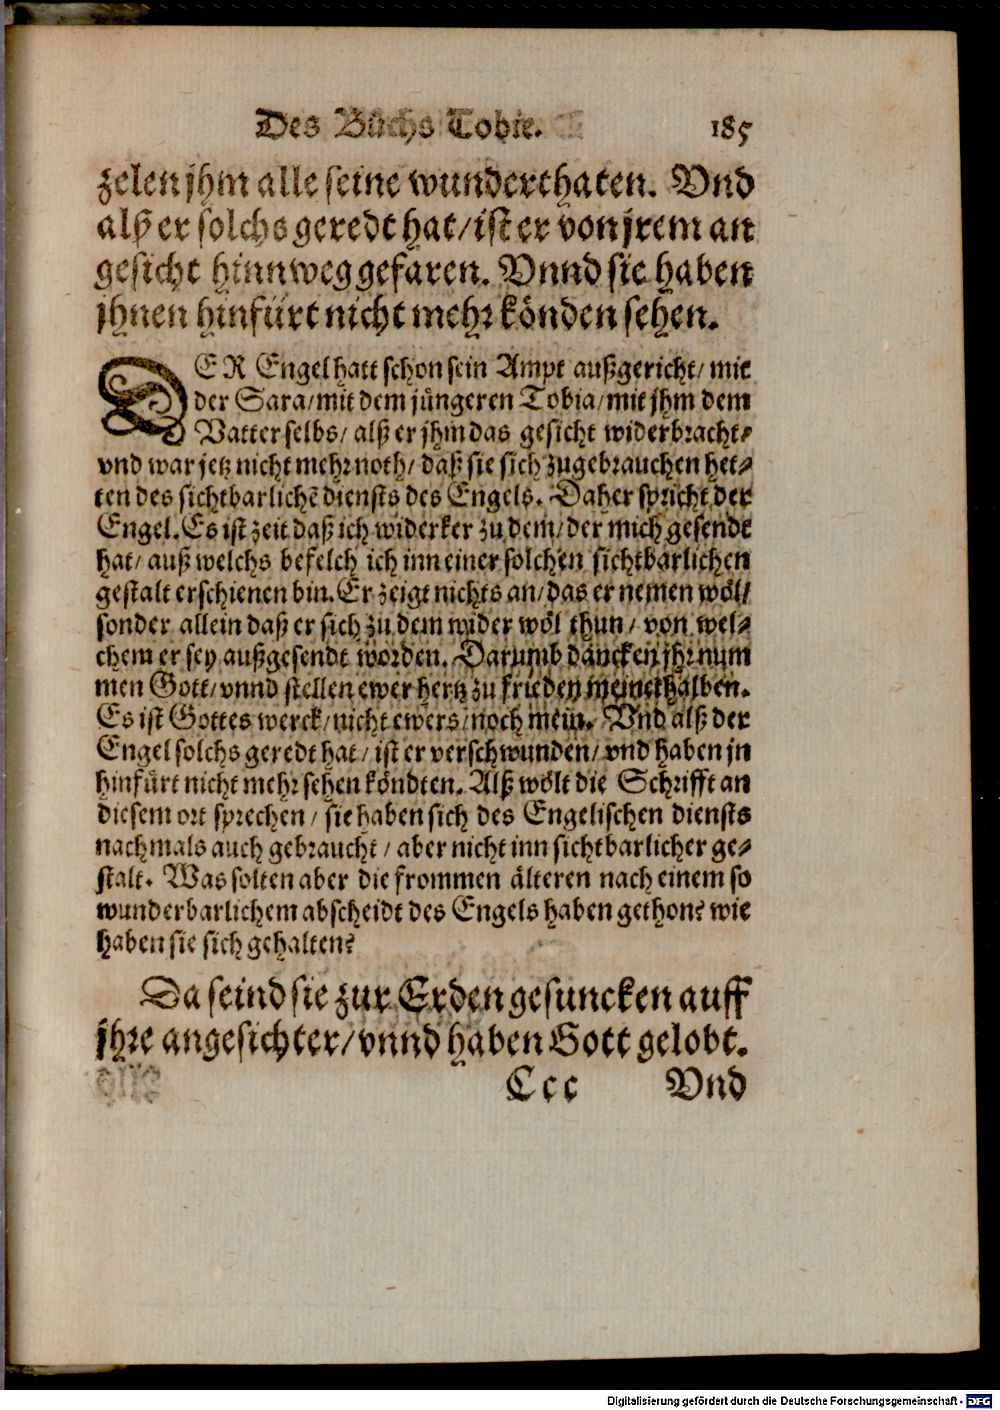 Des Bůchs Tobie. 185
zelen jhm alle seine wunderthaten. Vnd
alß er solchs geredt hat/ ist er von jrem an
gesicht hinnweg gefaren. Vnnd sie haben
jhnen hinfürt nicht mehr könden sehen.
DER Engel hatt schon sein Ampt außgericht/ mit
der Sara/ mit dem jüngeren Tobia/ mit jhm dem
Vatter selbs/ alß er jhm das gesicht widerbracht/
vnd war jetz nicht mehr noth/ daß sie sich zugebrauchen het⸗
ten des sichtbarlichē diensts des Engels. Daher spricht der
Engel. Es ist zeit daß ich widerker zu dem/ der mich gesendt
hat/ auß welchs befelch ich inn einer solchen sichtbarlichen
gestalt erschienen bin. Er zeigt nichts an/ das er nemen wöl/
sonder allein daß er sich zu dem wider wöl thun/ von wel⸗
chem er sey außgesendt worden. Darumb dancken jhr num
men Gott/ vnnd stellen ewer hertz zu frieden meinethalben.
Es ist Gottes werck/ nicht ewers/ noch mein. Vnd alß der
Engel solchs geredt hat/ ist er verschwunden/ vnd haben jn
hinfürt nicht mehr sehen köndten. Alß wölt die Schrifft an
diesem ort sprechen/ sie haben sich des Engelischen diensts
nachmals auch gebraucht/ aber nicht inn sichtbarlicher ge⸗
stalt. Was solten aber die frommen älteren nach einem so
wunderbarlichem abscheidt des Engels haben gethon? wie
haben sie sich gehalten?
Da seind sie zur Erden gesuncken auff
jhre angesichter/ vnnd haben Gott gelobt.
Ccc Vnd
Digitalisierung gefördert durch die Deutsche Forschungsgemeinschaft - DFG